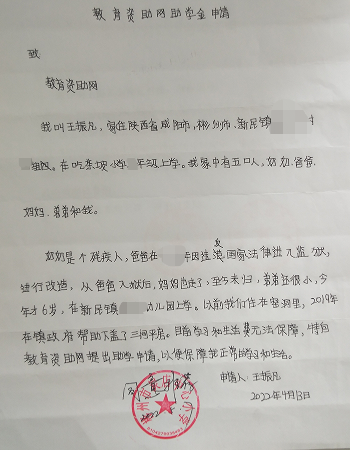 教育资助网助学金申请
致
教育资助网
我叫王振凡,家住陕西省咸阳市,彬州市,新民镇 村
组。在吃 坡小学 年级上学。我家中有五口人,奶奶.爸爸.
妈妈.弟弟和我。
奶奶是个残疾人,爸爸在 年因违反国家法律进入监狱,
进行改造,从爸爸入狱后,妈妈也走了,至今未归,弟弟还很小,今
年才6岁,在新民镇 幼儿园上学。以前我们住在窑洞里,2019年
在镇政府帮助下盖了三间平房。目前学习和生活费无法保障,特向
教育资助网提出助学申请,以便保障我正常的学习和生活。
申请人:王振凡
2022年4月13日